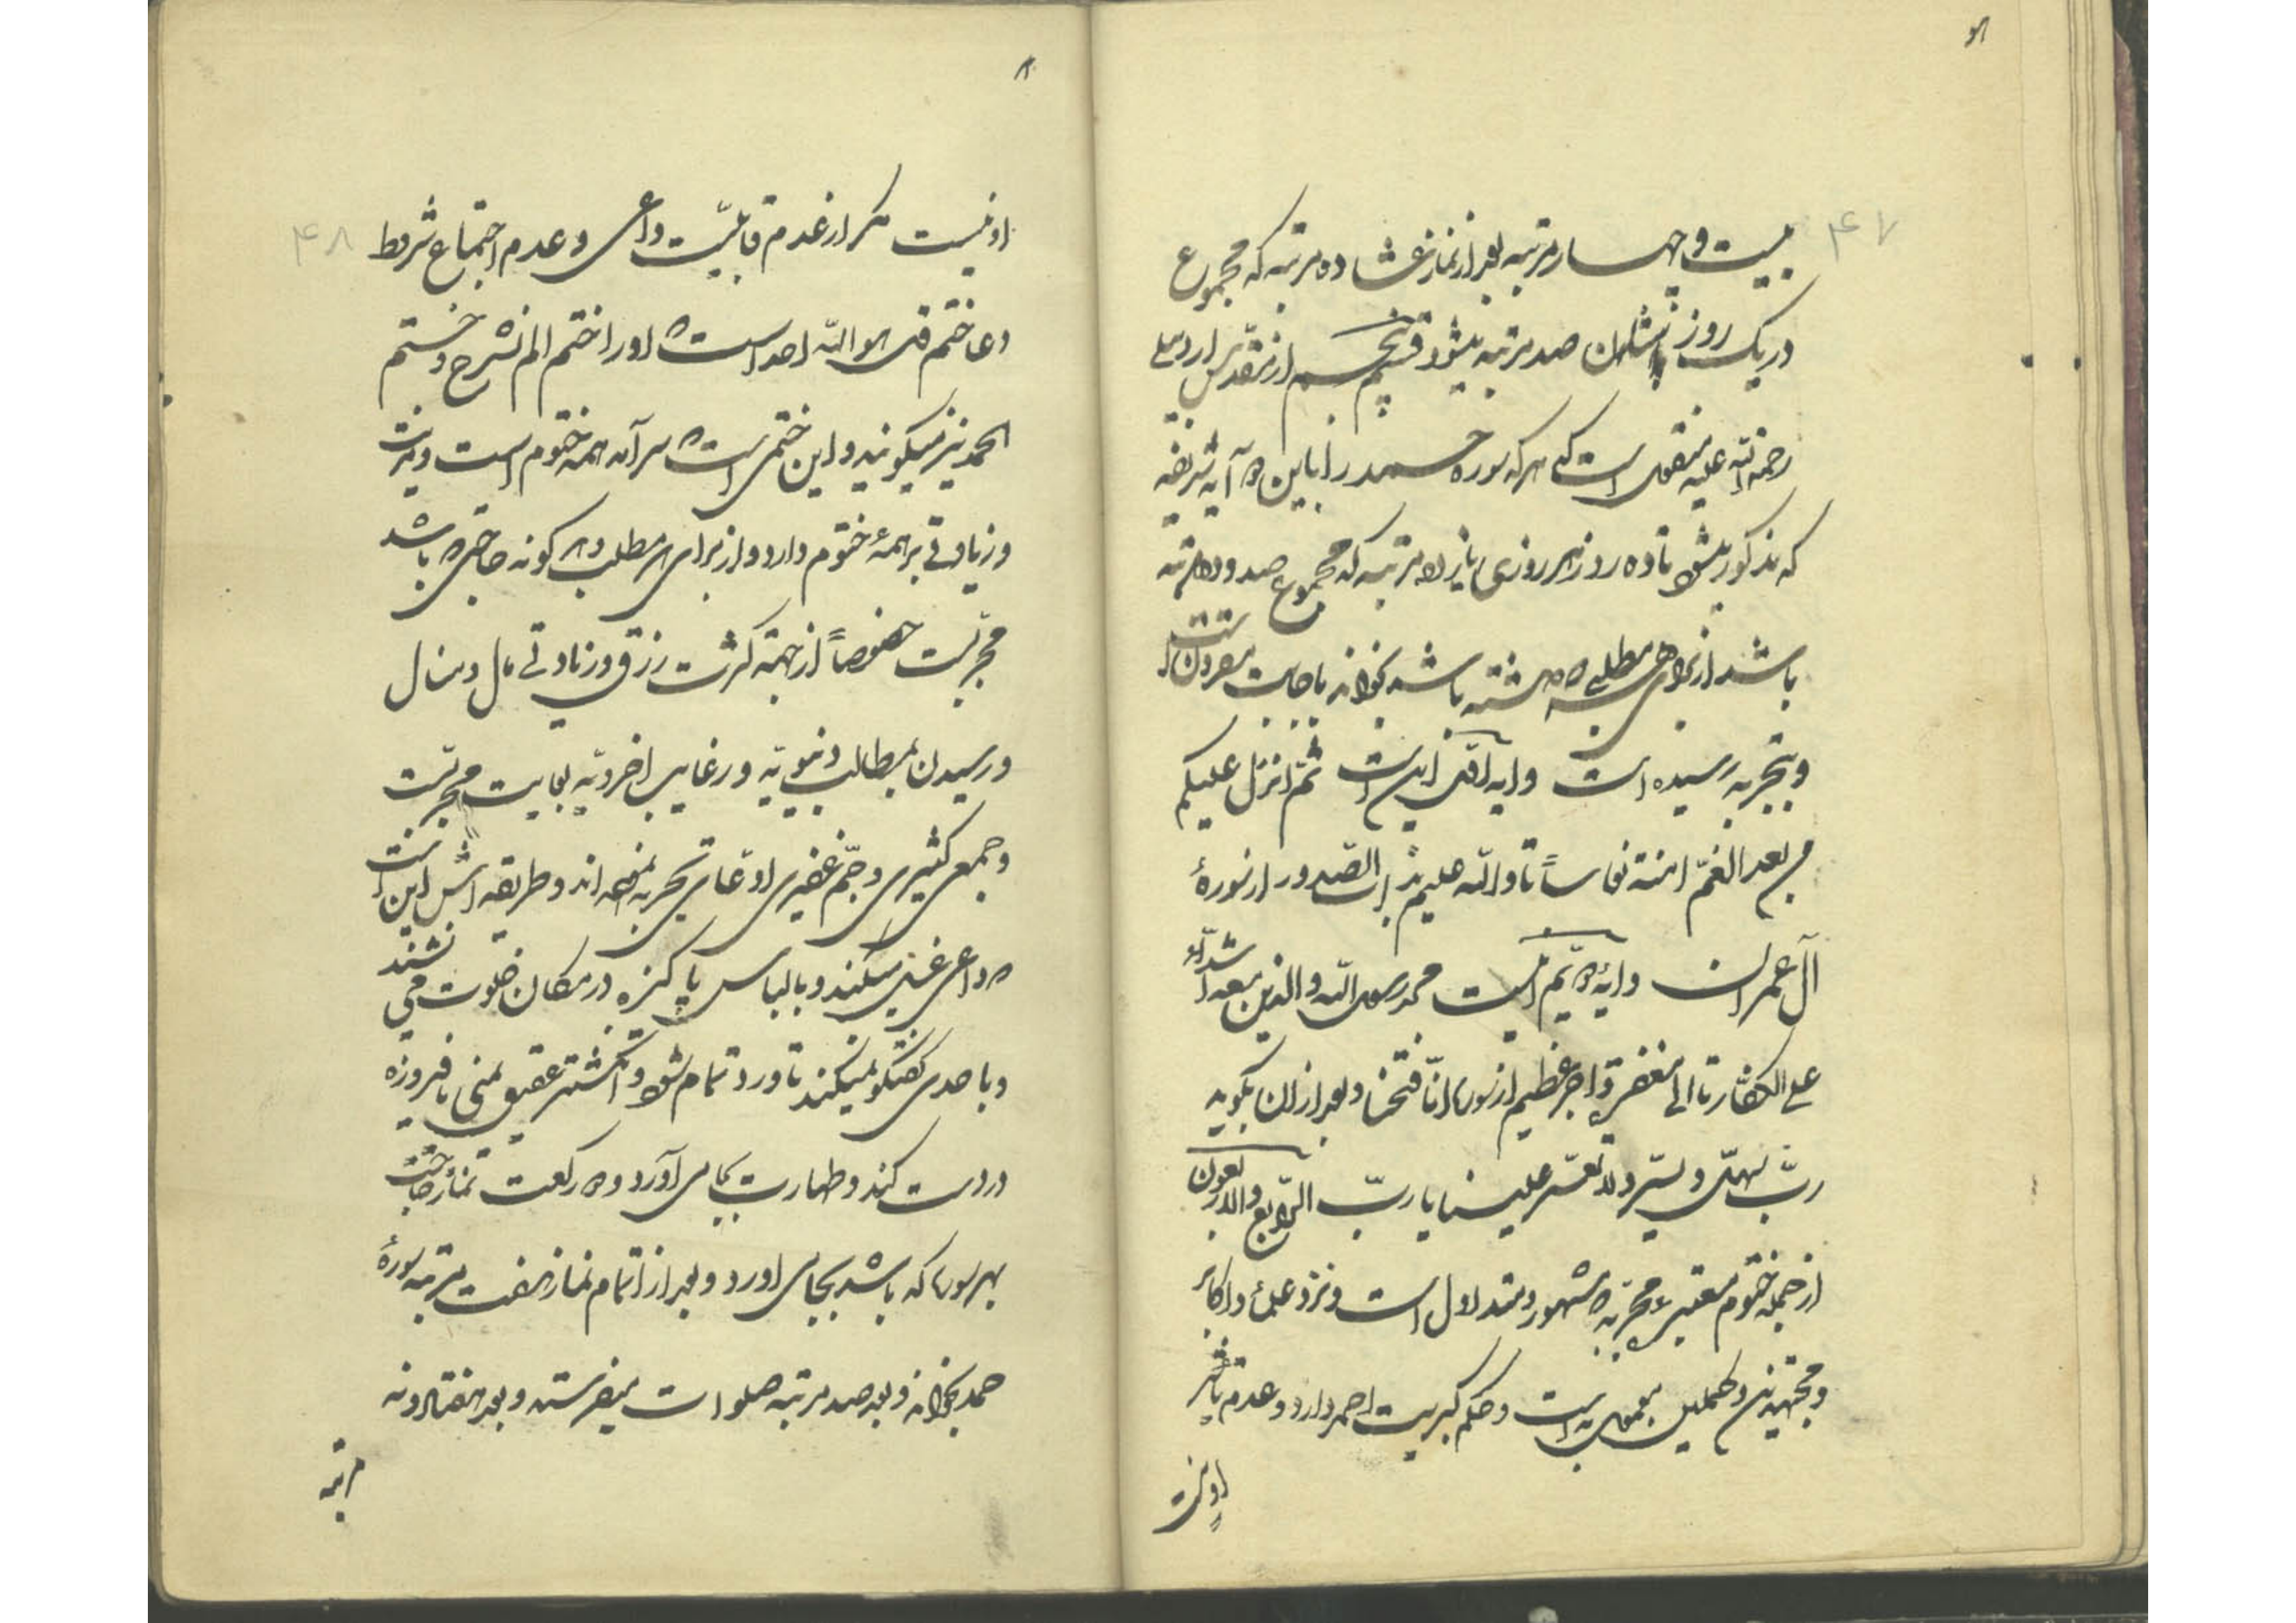 ۴۷
بیست و چهار مرتبه بعد از نماز عشا ده مرتبه که مجموع
در یک روز صد مرتبه میشود قسم پنجم از مقدس اردبیلی
رحمة الله علیه منقولست که هر که سوره حمد را با این دو آیه شریفه
که مذکور میشود تا ده روز هر روزی یازده مرتبه که مجموع صد و ده مرتبه
باشد از برای هر مطلبی که داشته باشد بخواند باجابت مقرونست
و بتجربه رسیده است و آیه اول اینست ثم انزل علیکم
من بعد الغمّ امنة نعاساً تا والله علیم بذات الصّدور از سورهٔ
آل عمران و آیهٔ دویّم اینست محمد رسول الله والذین معه اشدّاء
علی الکفّار تا الی مغفرة و اجر عظیم از سوره انّا فتحنا و بعد از ان بگوید
ربّ سهّل و یسّر ولا تعسّر علینا یا ربّ الرّابع والاربعون
از جمله ختوم معتبرهٔ مجرّبه مشهور و متداول است و نزد علماء و اکابر
و مجتهدین و کملین معمول به است و حکم کبریت احمر دارد و عدم تاثیر
او نیست
۴۸
او نیست مگر از عدم قابلیّت داعی و عدم اجتماع شروط
دعا ختم قل هو الله احد است که او را ختم الم نشرح و ختم
الحمد نیز میگویند و این ختمی است که سرآمد همه ختوم است و مزیت
و زیادتی بر همهٔ ختوم دارد و از برای هر مطلب و هر گونه حاجتی که باشد
مجرّبست خصوصاً از جهة کثرت رزق و زیادتی مال و منال
و رسیدن بمطالب دنیویّه و رغایب اخرویّه بغایت مجرّبست
و جمعی کثیری و جمّ غفیری ادّعای تجربه نموده اند و طریقه اش این است
که داعی غسل میکند و با لباس پاکیزه در مکان خلوت می نشیند
و با احدی گفتگو نمیکند تا ورد تمام شود و انگشتر عقیق یمنی یا فیروزه
در دست کند و طهارت بجای آورد و دو رکعت نماز حاجت
بهر سوره که باشد بجای اورد و بعد از اتمام نماز هفت مرتبه سورهٔ
حمد بخواند و بعد صد مرتبه صلوات میفرستد و بعد هفتاد و نه
مرتبه